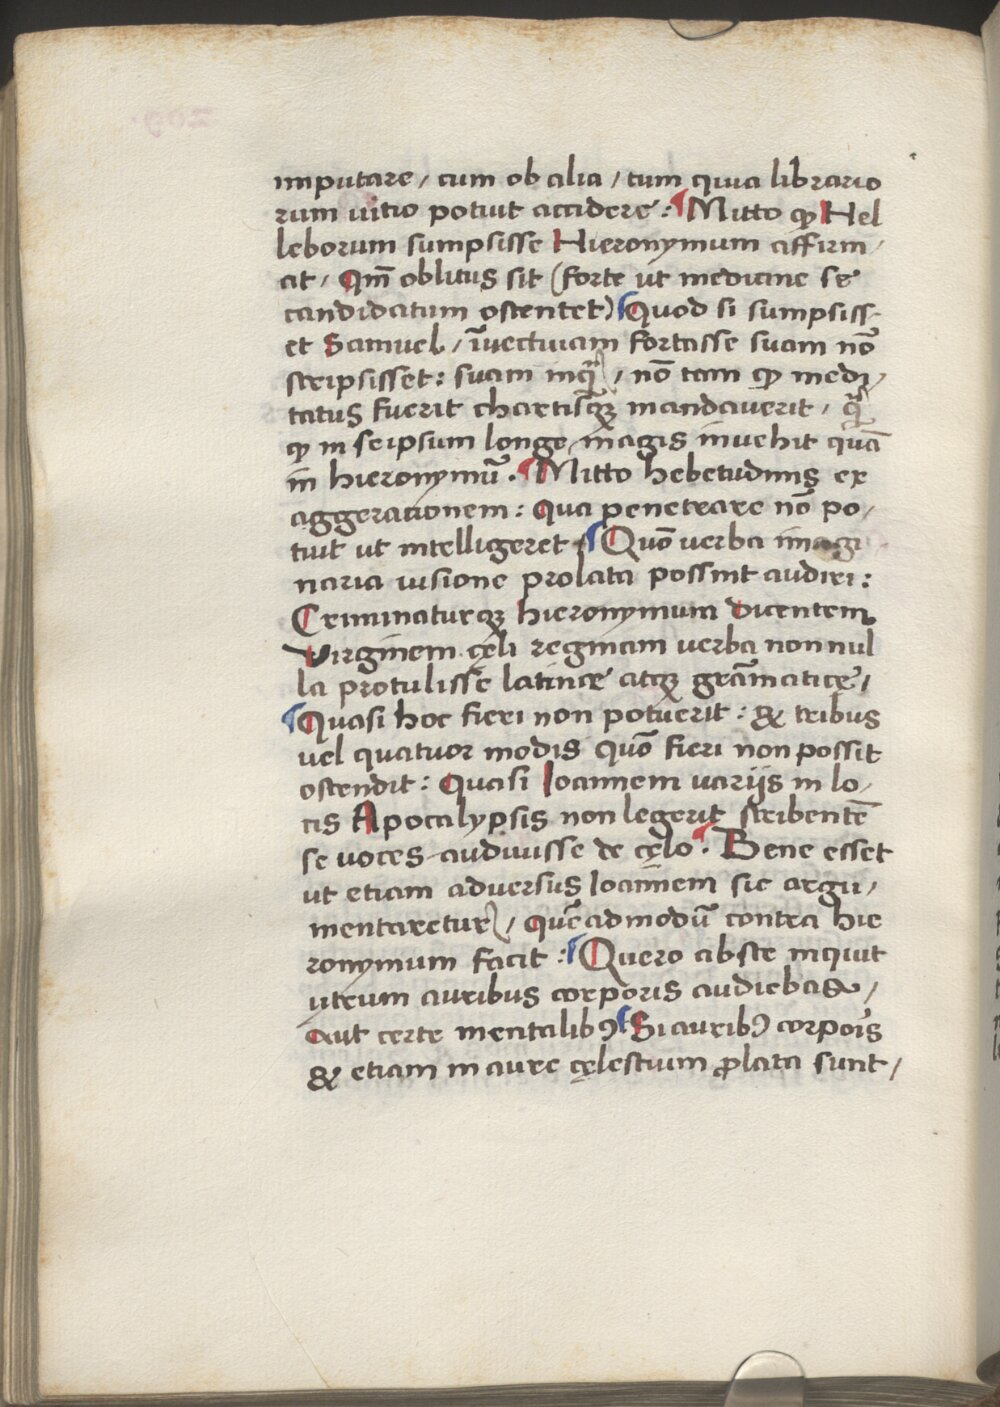 imputare / cum ob alia / tum quia librario
rum uitio potuit accidere : Mitto ꝙ Hel
leborum sumpsisse Hieronymum affirm /
at / Qm̄ oblitus sit (forte ut medicine se
candidatum ostentet) Quod si sumpsiss-
et Samuel / īuectiuam fortasse suam nō
scripsisset : suam inq̄ / nō tam ꝙ medi /
tatus fuerit chartisqꝫ mandauerit /
ꝙ in seipsum longe magis inuehit quā
in hieronymū . Mitto hebetudinis ex
aggerationem : Qua penetrare nō po /
tuit ut intelligeret Quō verba imagi
naria uisione prolata possint audiri :
Criminaturqꝫ hieronymum dicentem
Virginem cęli reginam uerba non nul
la protulisse latine atqꝫ grāmatice /
Quasi hoc fieri non potuerit : & tribus
uel quatuor modis quō fieri non possit
ostendit : Quasi Ioannem uariis in lo /
cis Apocalypsis non legerit scribentē
se uoces audiuisse de cęlo . Bene esset
ut etiam aduersus Ioannem sic argu /
mentaretur / quēadmodū contra hie
ronymum facit : Quero abste inquit
utrum auribus corporis audiebat /
Aut certe mentalibꝰ Si auribꝰ corpois
& etiam in aure cęlestium ꝓlata sunt /